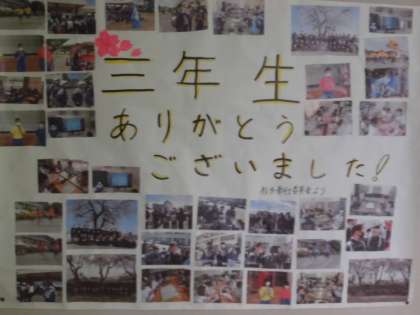 三年生
ありがとう
ございました!